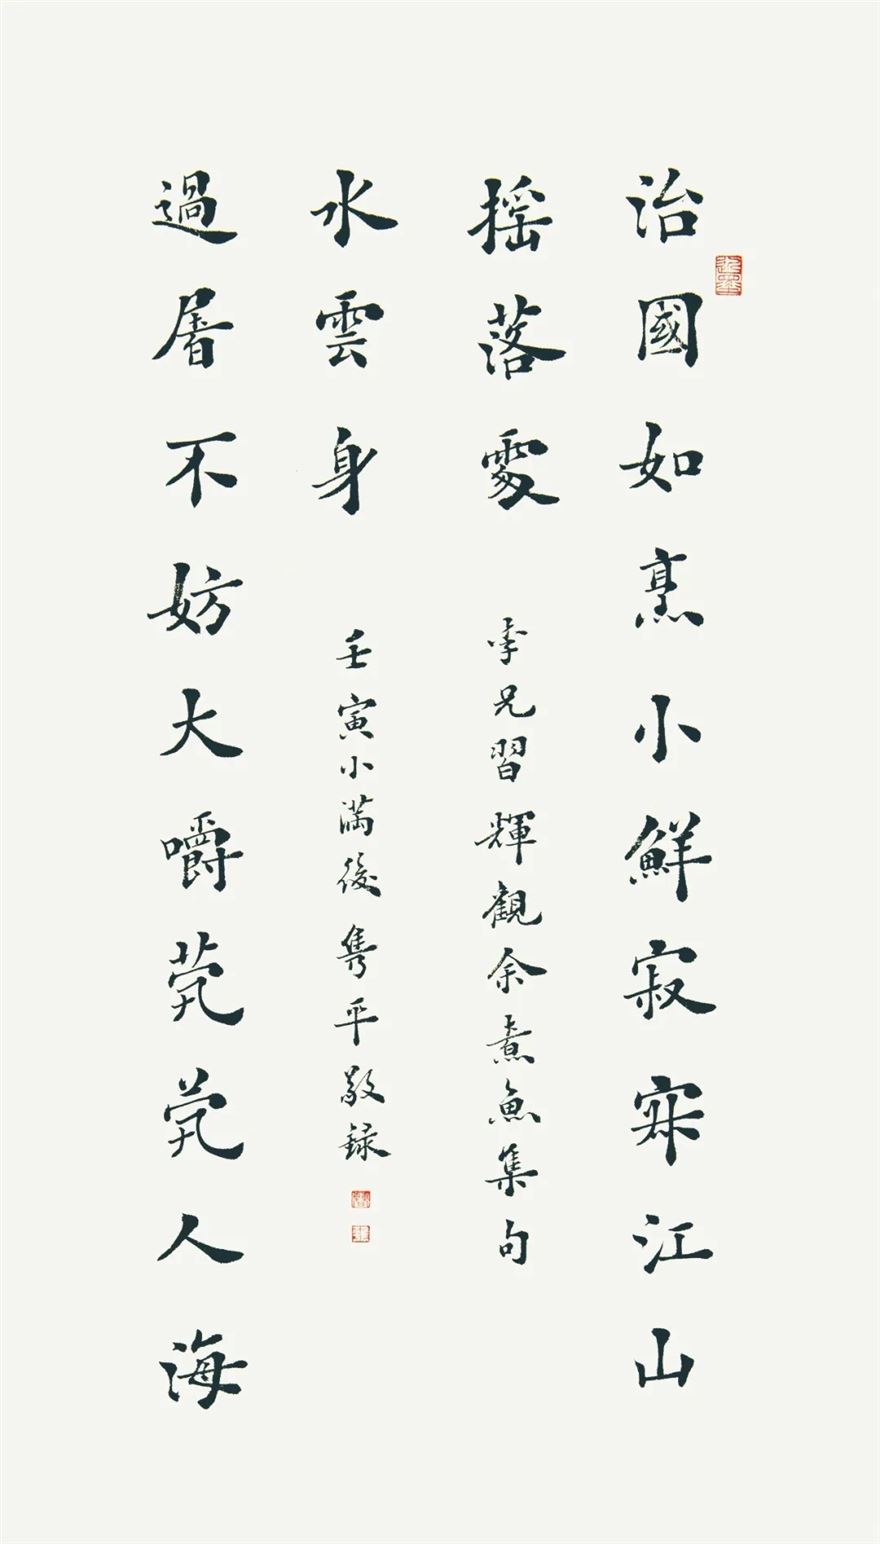 治國如烹小鮮寂寂江山
摇落處
季兄習輝觀余煮魚集句
過屠不妨大嚼茕茕人海
水雲身
壬寅小滿後雋平敬録